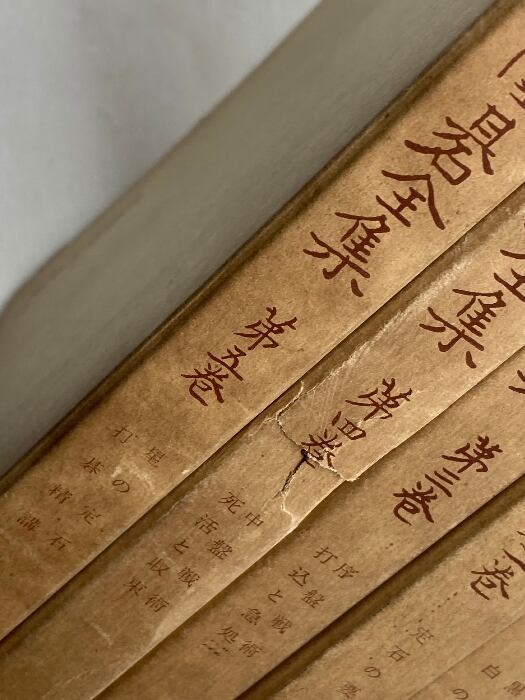 碁全集
第五卷
星の定石
打碁精講
全集
第四卷
中盤戦術
死活と収束
第三卷
序盤戦術
打込と急処
卷
定石の